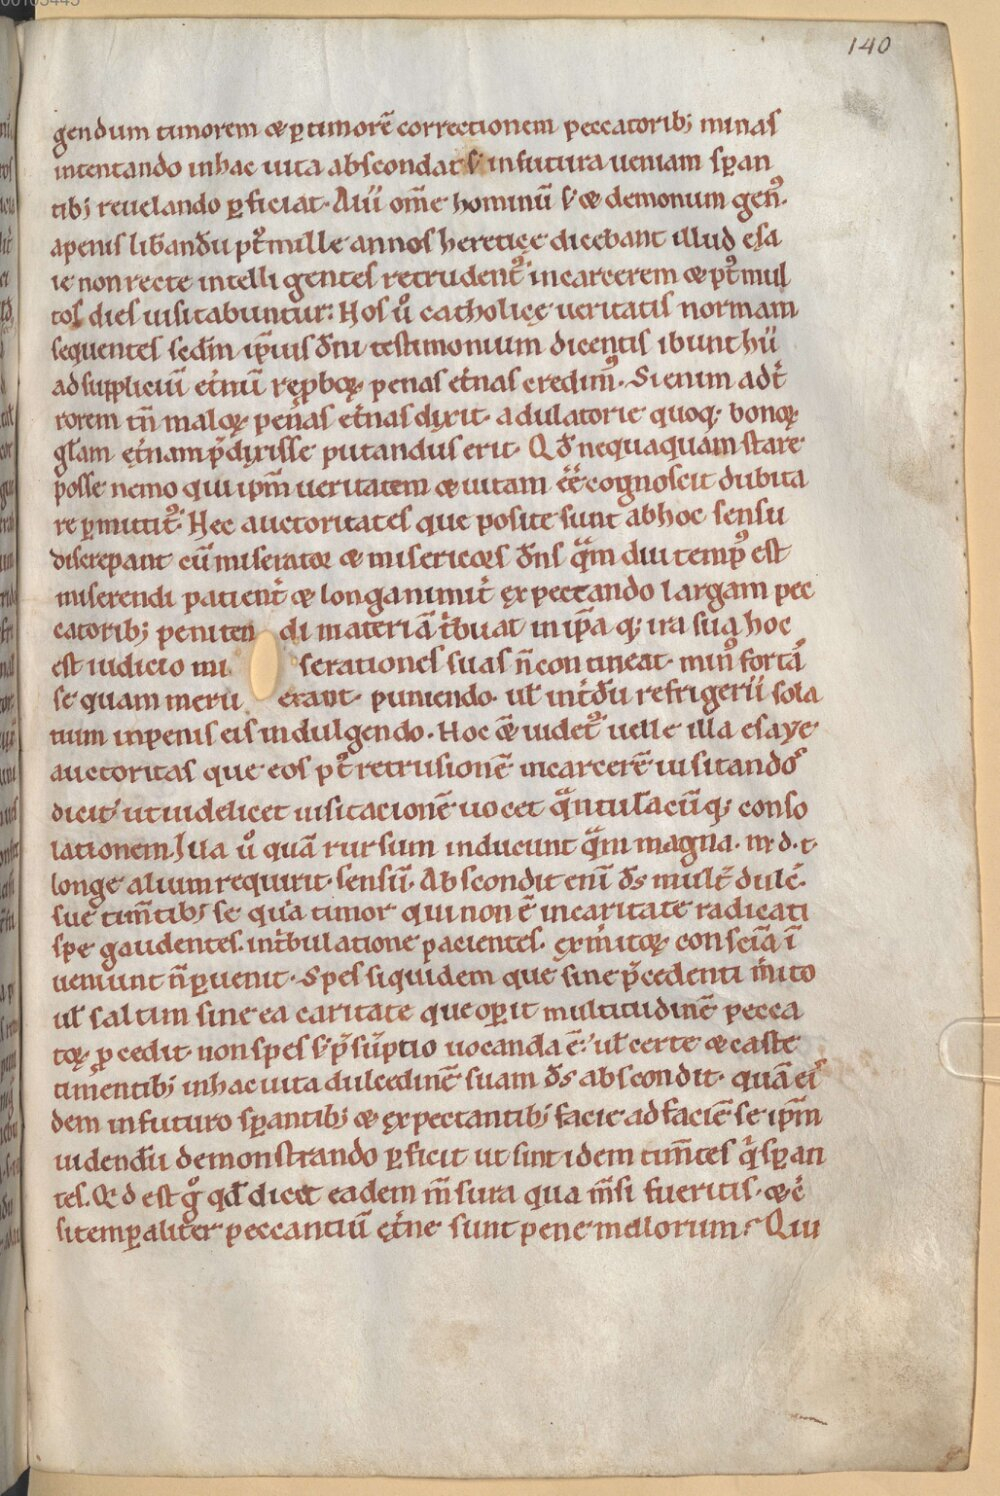 140
gendum timorem & p̱ timorē correctionem peccatorib; minas
intentando in hac uita abscondat s; in futura ueniam sp̱an
tib; reuelando p̱ficiat. Alii om̄e hominū s; & demonum gen᷒.
a penis lib̄andū pꝰt mille annos heretice dicebant illud esa
ie non recte intelligentes retrudent᷒ in carcerem & pꝰt mul
tos dies uisitabuntur; Hos ů catholicę ueritatis normam
sequentes sedm̄ ip̄ius dn̄i testimonium dicentis ibunt hii
ad suppliciū et̄nū rep̱boꝝ penas et̄nas credim᷒. Si enim ad t̄
rorem tn̄ maloꝝ penas et̄nas dixit. adulatorie quoq; bonoꝝ
gl̄am et̄nam p̄dixisse putandus erit. Qd̄ nequaquam stare
posse nemo qui ip̄m ueritatem & uitam ēē cognoscit dubita
re p̱mittit᷒. Hec auctoritates que posite sunt ab hoc sensu
discrepant cū miserator & misericors dn̄s q̄m diu temp᷒ est
miserendi pacient̄ & longanimit̄ expectando largam pec
catorib; peniten di materiā t̄buat in ip̄a q; ira sua hoc
est iudicio mi serationes suas n̄ contineat. min᷒ fortas
se quam meru erant. puniendo. ul̄ int̄dū refrigerii sola
tium in penis eis indulgendo. Hoc &̄ uidet᷒ uelle illa esaye
auctoritas que eos pꝰt retrusionē in carcerē uisitandos
dicit; ut uidelicet uisitacionē uocet q̄ntulācūq; conso
lationem. Illa ů quā rursum inducunt q̄m magna. m. d. t.
longe alium requirit. sensū. Abscondit eni̅ ds̄ mult̄. dulc̄.
sue tim̄tib; se quia timor qui non ē in caritate radicati
spe gaudentes. in t̄bulatione pacientes. ex m̄itoꝝ consciā ī
ueniunt n̄ p̱uenit. Spes siquidem que sine p̄cedenti m̄ito
ul̄ saltim sine ea caritate que op̱it multitudinē pecca
toꝝ p̱cedit. non spes s; p̄sūptio uocanda ē; ul̄ certe & caste
timentib; in hac uita dulcedinē suam ds̄ abscondit. quā eis
dem in futuro sp̱antib; & expectantib; facie ad faciē se ip̄m
uidendū demonstrando p̱ficit ut sint idem tim̄tes q̄ sp̱an
tes. Qd̄ est g̊ qd̄ dicit eadem m̄sura qua m̄si fueritis. & c̄
si temp̱aliter peccantiū et̄ne sunt pene mellorum? Qui